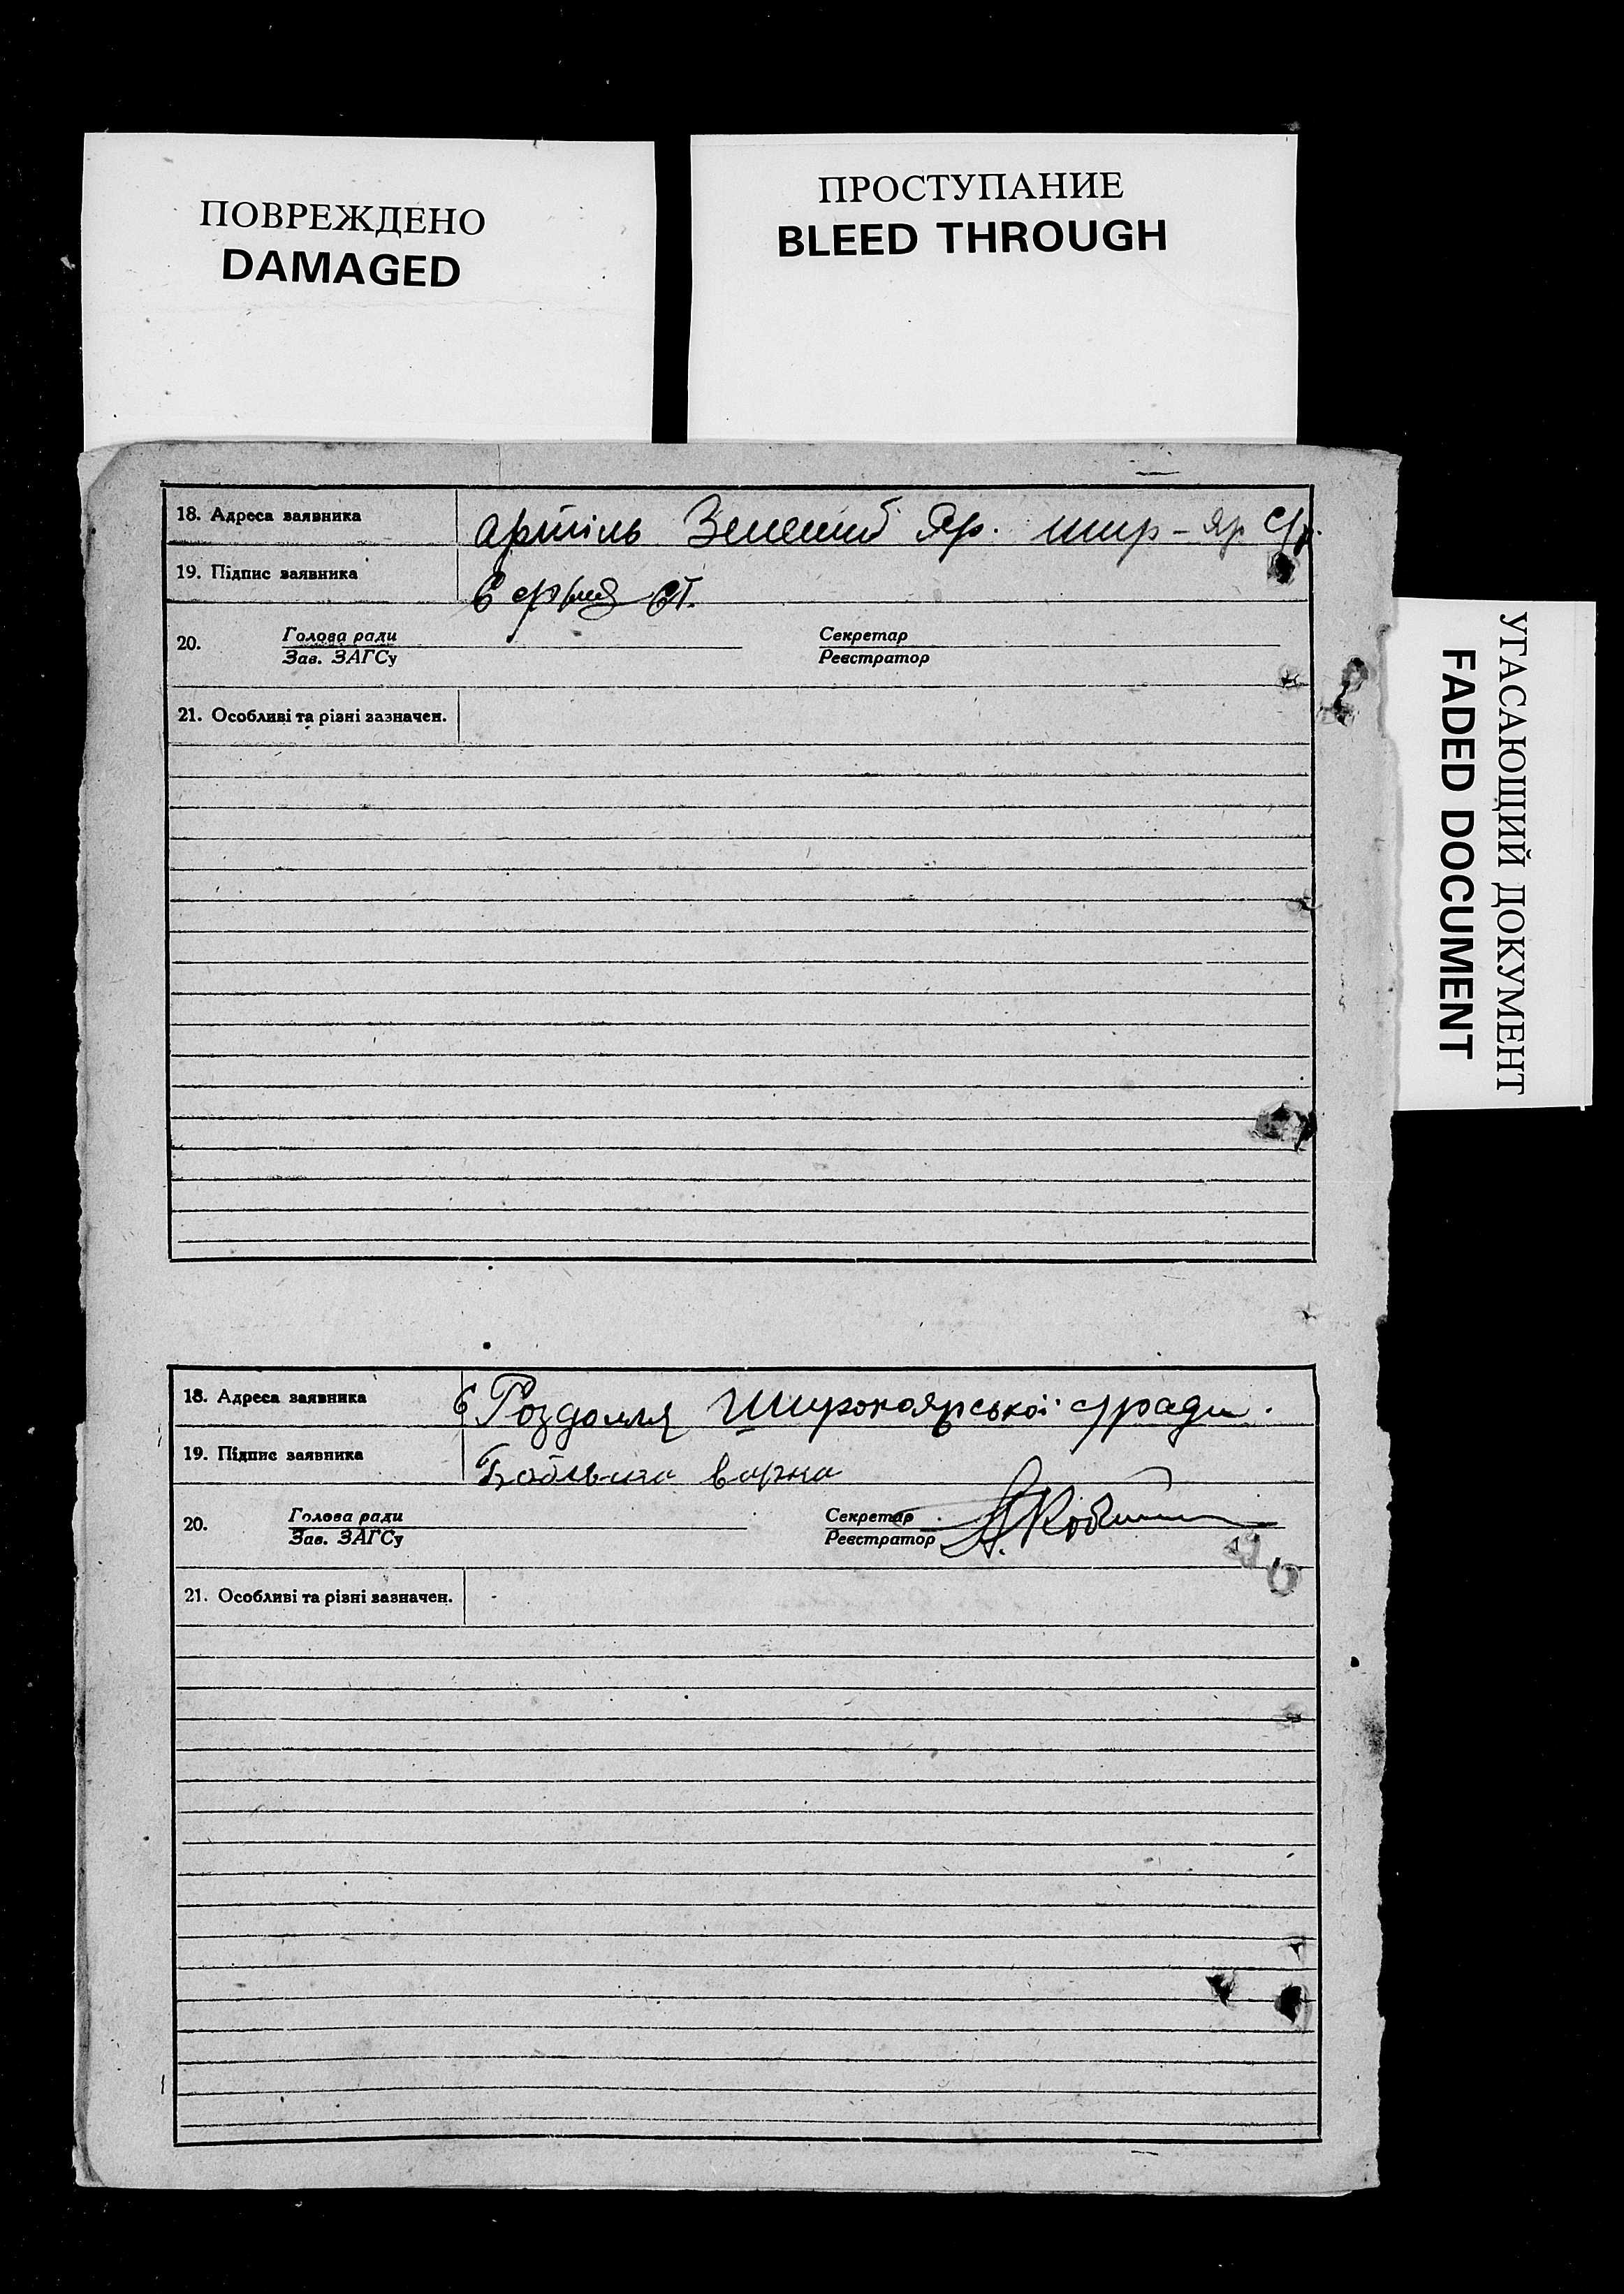 ПОВРЕЖДЕНО
DAMAGED
ПРОСТУПАНИЕ
BLEED THROUGH
УГАСАЮЩИЙ ДОКУМЕНТ
FADED DOCUMENT
18. Адреса заявника артіль Зелений Яр. шир-яр с/р.
19. Підпис заявника
20. Голова ради Секретар
Зав. ЗАГСу Реєстратор
21. Особливі та різні зазначен.
18. Адреса заявника с Роздолля Широкоярської с/ради.
19. Підпис заявника
20. Голова ради Секретар
Зав. ЗАГСу Реєстратор
21. Особливі та різні зазначен.